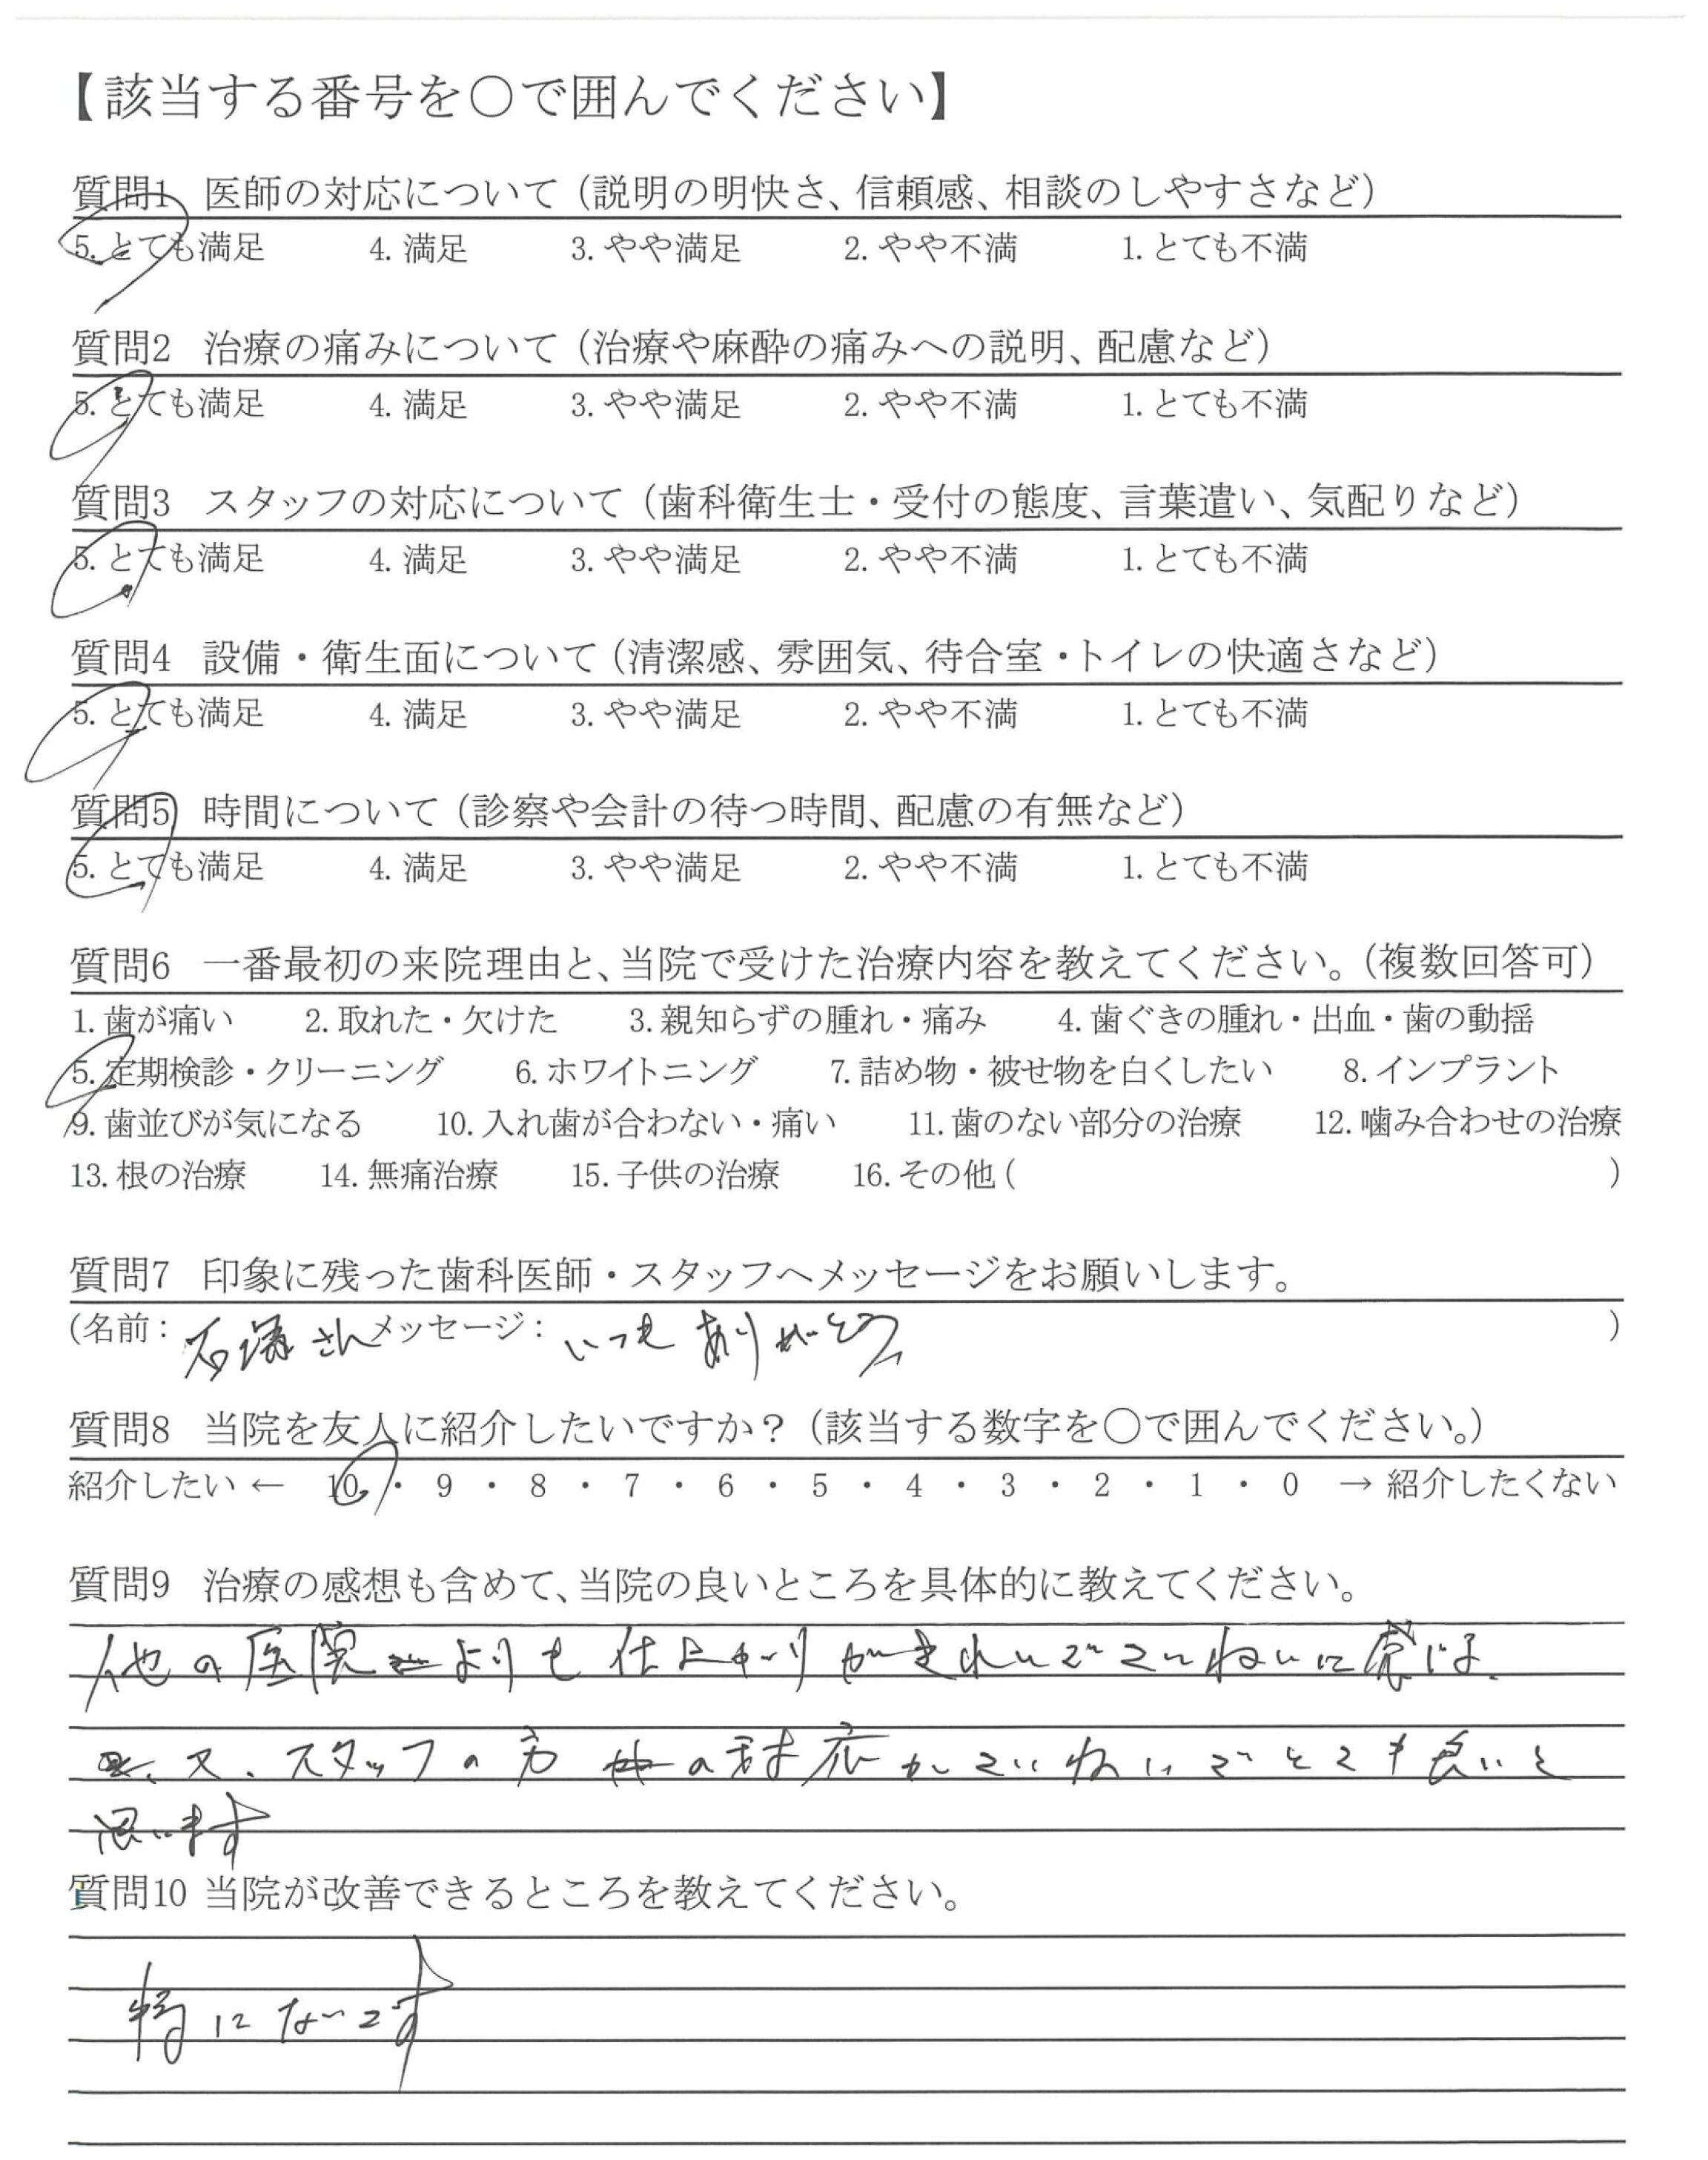 【該当する番号を○で囲んでください】
質問1 医師の対応について（説明の明快さ、信頼感、相談のしやすさなど）
5. とても満足 4. 満足 3. やや満足 2. やや不満 1. とても不満
質問2 治療の痛みについて（治療や麻酔の痛みへの説明、配慮など）
5. とても満足 4. 満足 3. やや満足 2. やや不満 1. とても不満
質問3 スタッフの対応について（歯科衛生士・受付の態度、言葉遣い、気配りなど）
5. とても満足 4. 満足 3. やや満足 2. やや不満 1. とても不満
質問4 設備・衛生面について（清潔感、雰囲気、待合室・トイレの快適さなど）
5. とても満足 4. 満足 3. やや満足 2. やや不満 1. とても不満
質問5 時間について（診察や会計の待つ時間、配慮の有無など）
5. とても満足 4. 満足 3. やや満足 2. やや不満 1. とても不満
質問6 一番最初の来院理由と、当院で受けた治療内容を教えてください。（複数回答可）
1. 歯が痛い 2. 取れた・欠けた 3. 親知らずの腫れ・痛み 4. 歯ぐきの腫れ・出血・歯の動揺
5. 定期検診・クリーニング 6. ホワイトニング 7. 詰め物・被せ物を白くしたい 8. インプラント
9. 歯並びが気になる 10. 入れ歯が合わない・痛い 11. 歯のない部分の治療 12. 噛み合わせの治療
13. 根の治療 14. 無痛治療 15. 子供の治療 16. その他（ ）
質問7 印象に残った歯科医師・スタッフへメッセージをお願いします。
（名前： さん メッセージ： いつも ありがとう ）
質問8 当院を友人に紹介したいですか？（該当する数字を○で囲んでください。）
紹介したい ← 10 ・ 9 ・ 8 ・ 7 ・ 6 ・ 5 ・ 4 ・ 3 ・ 2 ・ 1 ・ 0 → 紹介したくない
質問9 治療の感想も含めて、当院の良いところを具体的に教えてください。
他の医院よりも仕上がりがきれいでていねいに感じま
又、スタッフの方の対応がていねいでとても良いと
思います
質問10 当院が改善できるところを教えてください。
特にないです